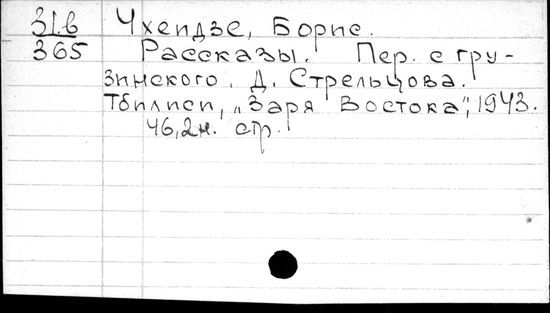 31.в Чхеидзе, Борис.
365 Рассказы. Пер. с гру-
зинского. Д. Стрельцова.
Тбилиси, „Заря Востока“, 1943.
46,2н. стр.